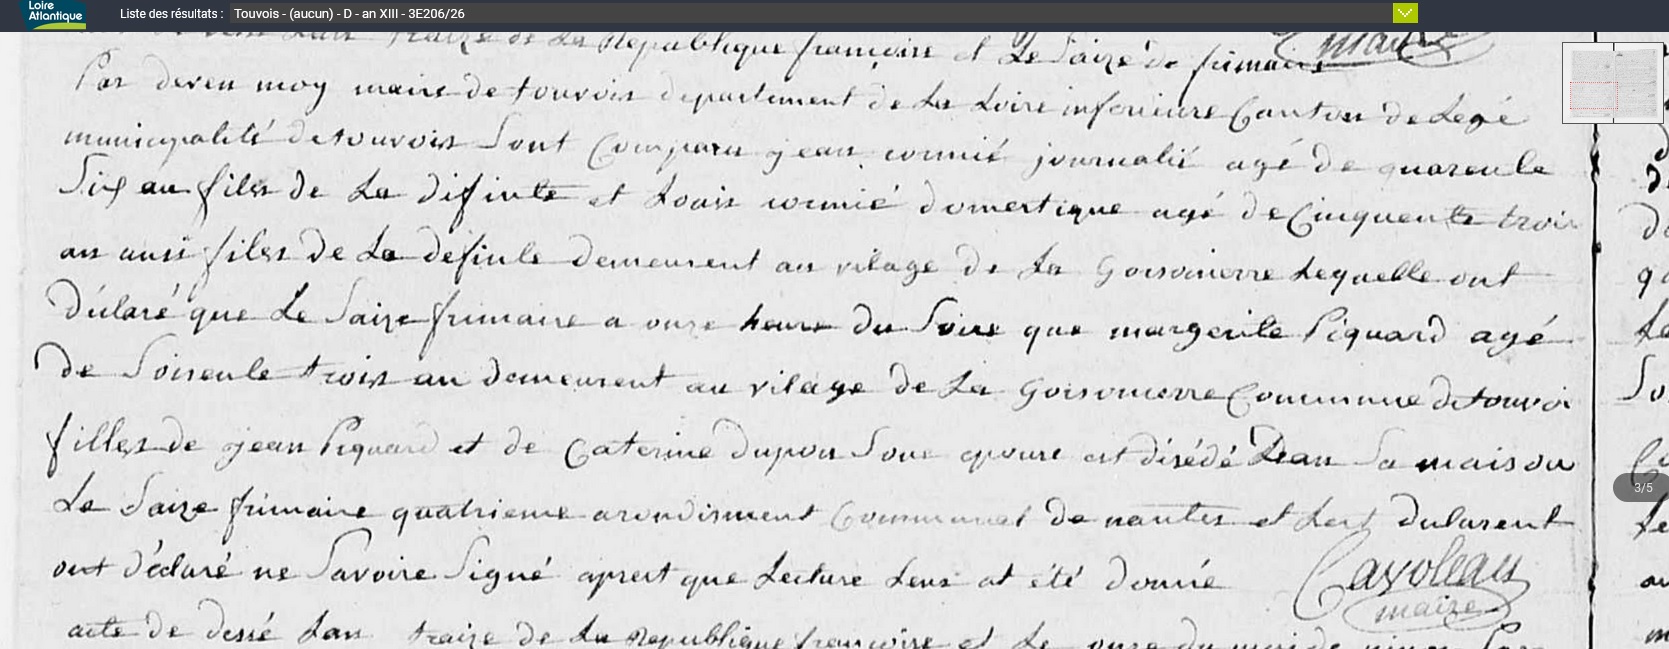 Loire
Atlantique
Liste des résultats : Touvois - (aucun) - D - an XIII - 3E206/26
Lan traize de La Republique françoise et Le Saize de frimaire
maire
Par deven moy maire de touvois departement de La Loire inferieure Canton de Legé
municipalité de touvois Sont Comparu jean cormié journalié agé de quarente
Six an fils de La difinte et Louis cormié domestique agé de Cinquente trois
an ausi fils de La definte demeurent au vilage de La Goisonierre Lequelle ont
Déclaré que Le Saize frimaire a onze heure du Soire que margerite Piquard agé
de Soisente trois an demeurent au vilage de La Goisonierre Commune de touvoi
filles de jean Piquard et de Caterine Dupon Son epouse est désédé Dean Sa maison
Le Saize frimaire quatrieme arondisment Communal de nantes et Les dularent
ont déclaré ne Savoire Signé aprest que Lecture Leur at été donné
Cavoleau
maire
acte de dessé Lan traize de La Republique françoise et Le onze du mois de nivos Par
3/5